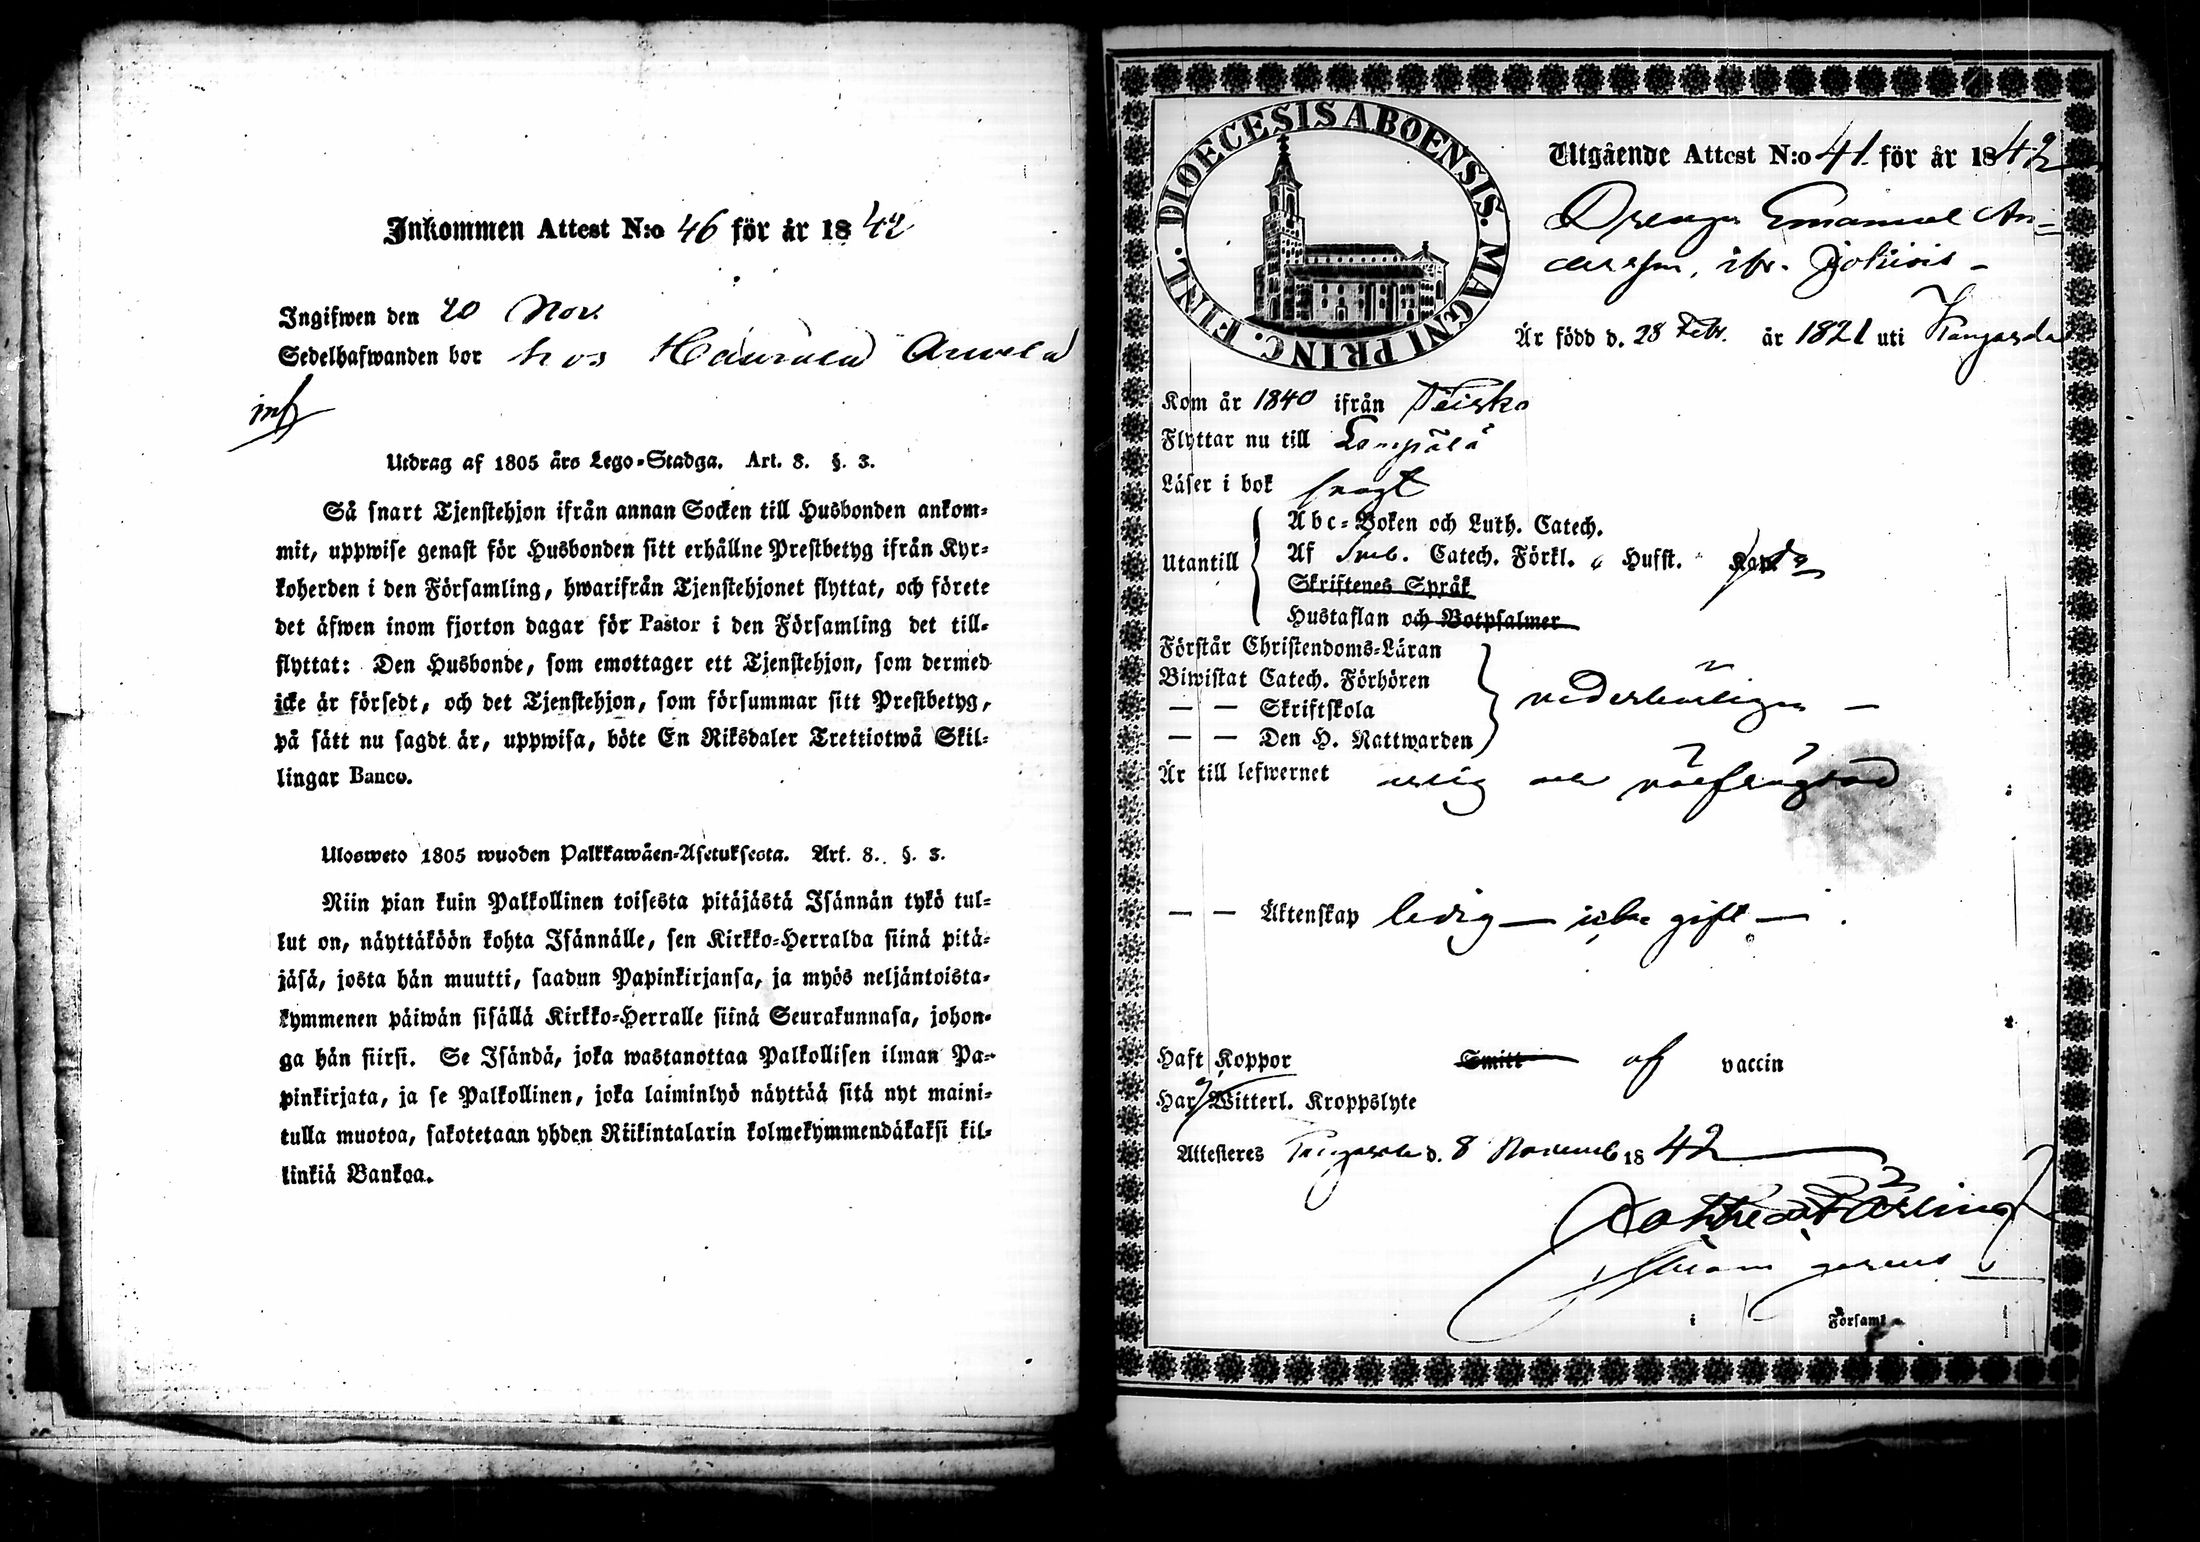 Inkommen Attest N:o 46 för år 1842
Ingifwen den 20 Nov.
Sedelhafwanden bor hos
Utdrag af 1805 års Lego-Stadga. Art. 8. §. 3.
Så snart Tjenstehjon ifrån annan Socken till Husbonden ankom-
mit, uppwise genast för Husbonden sitt erhållne Prestbetyg ifrån Kyr-
koherden i den Församling, hwarifrån Tjenstehjonet flyttat, och förete
det äfwen inom fjorton dagar för Pastor i den Församling det till-
flyttat: Den Husbonde, som emottager ett Tjenstehjon, som dermed
icke är försedt, och det Tjenstehjon, som försummar sitt Prestbetyg,
på sätt nu sagdt är, uppwisa, böte En Riksdaler Trettiotwå Skil-
lingar Banco.
Ulosweto 1805 wuoden Palkkawäen-Asetuksesta. Art. 8. §. 3.
Niin pian kuin Palkollinen toisesta pitäjästä Isännän tykö tul-
lut on, näyttäköön kohta Isännälle, sen Kirkko-Herralda siinä pitä-
jäsä, josta hän muutti, saadun Papinkirjansa, ja myös neljäntoista-
kymmenen päiwän sisällä Kirkko-Herralle siinä Seurakunnasa, johon-
ga hän siirsi. Se Isändä, joka wastanottaa Palkollisen ilman Pa-
pinkirjata, ja se Palkollinen, joka laiminlyö näyttää sitä nyt maini-
tulla muotoa, sakotetaan yhden Riikintalarin kolmekymmendäkaksi kil-
linkiä Bankoa.
DIOECESIS ABOENSIS. MAGNI PRINC. FINL.
Utgående Attest N:o 41 för år 1842
Drengen Emanuel An=
dersson, ifr.
Är född d. 28 Febr. år 1821 uti Kangasala
Kom år 1840 ifrån Teisko
Flyttar nu till Lempälä
Läser i bok svagt
Utantill
Abc-Boken och Luth. Catech.
Af Sveb. Catech. Förkl. Husst.
Skriftenes Språk
Hustaflan och Botpsalmer
Förstår Christendoms-Läran
Biwistat Catech. Förhören
— — Skriftskola
— — Den H. Nattwarden
vederbörligen —
Är till lefwernet ärlig och välfrägdad
— — Äktenskap ledig — icke gift — .
Haft Koppor Smitt af vaccin
Har Witterl. Kroppslyte
Attesteres Kangasala d. 8 Novemb 1842
i Församl